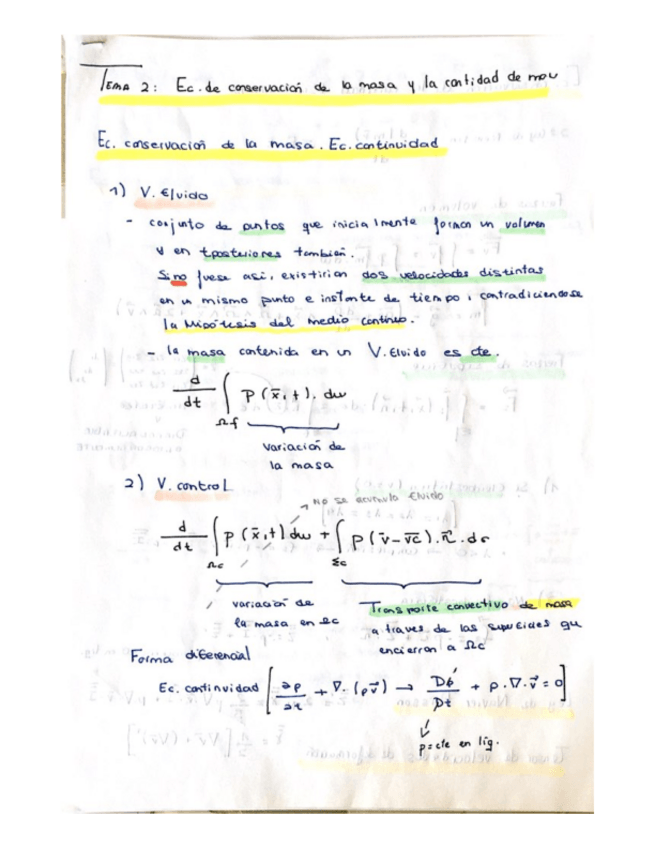 TEMA 2: Ec. de conservación de la masa y la cantidad de mov
Ec. conservación de la masa. Ec. continuidad
1) V. Fluido
- conjunto de puntos que inicialmente forman un volumen
y en tposteriores también.
Si no fuese así, existirian dos velocidades distintas
en un mismo punto e instante de tiempo, contradiciendose
la Hipótesis del medio continuo.
- la masa contenida en un V. Fluido es cte.
d/dt ∫Ωf ρ(x̄,t). dω
variación de
la masa
2) V. control
→ No se acumula fluido
d/dt ∫Ωc ρ(x̄,t) dω + ∫Σc ρ(v̄-v̄c).n̄.dσ
variación de
la masa en Ωc
Transporte convectivo de masa
a traves de las superficies que
encierran a Ωc
Forma diferencial
Ec. continuidad [∂ρ/∂t + ∇.(ρv̄) → Dρ/Dt + ρ.∇.v̄ = 0]
ρ=cte en liq.